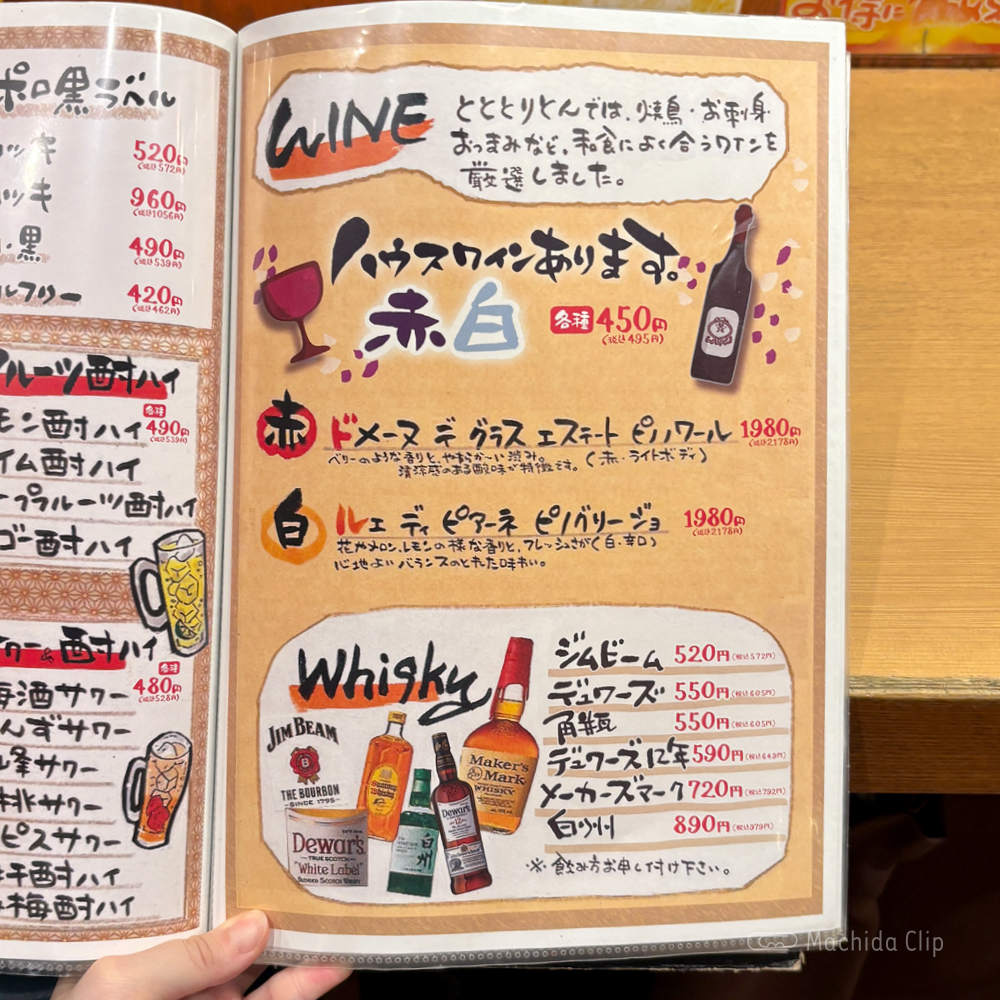 ポロ黒ラベル
520円
(税込572円)
960円
(税込1056円)
黒
490円
(税込539円)
ルフリー
420円
(税込462円)
フルーツ酎ハイ
モン酎ハイ
各種
490円
(税込539円)
イム酎ハイ
ープフルーツ酎ハイ
ゴー酎ハイ
ワー&酎ハイ
梅酒サワー
各種
480円
(税込528円)
んずサワー
峰サワー
桃サワー
ピスサワー
干酎ハイ
梅酎ハイ
WINE
とととりとんでは、焼鳥・お刺身
おつまみなど、和食によく合うワインを
厳選しました。
ハウスワインあります。
赤 白
各種 450円
(税込495円)
赤 ドメーヌ デ グラス エステート ピノノワール 1980円
(税込2178円)
ベリーのような香りと、やわらか〜い渋み。
清涼感のある酸味が特徴です。 (赤・ライトボディ)
白 ルエ ディ ピアーネ ピノグリージョ 1980円
(税込2178円)
花やメロン、レモンの様な香りと、フレッシュさが(白・辛口)
心地よいバランスのとれた味わい。
Whisky
ジムビーム 520円(税込572円)
デュワーズ 550円(税込605円)
角瓶 550円(税込605円)
デュワーズ12年 590円(税込649円)
メーカーズマーク 720円(税込792円)
白州 890円(税込979円)
※飲み方お申し付け下さい。
JIM BEAM
B
THE BOURBON
SINCE 1795
Dewar's
TRUE SCOTCH
"White Label"
BLENDED SCOTCH WHISKY
白州
Dewar's
12
Maker's
Mark
WHISKY
Machida Clip